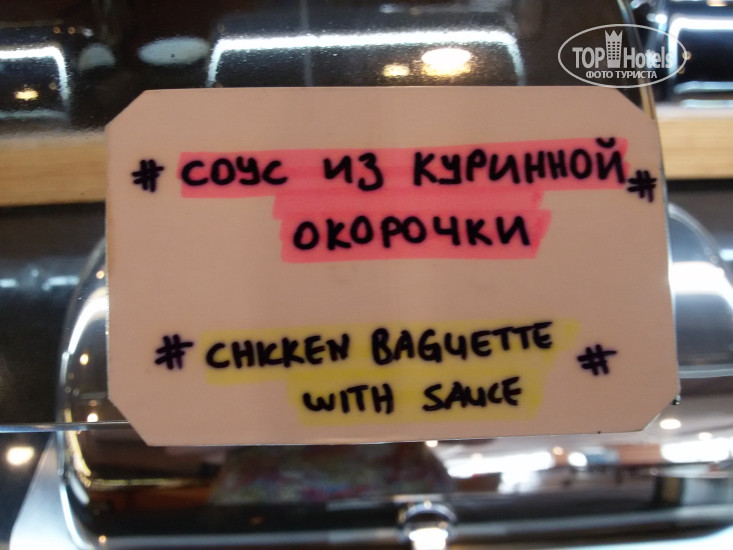 TOP Hotels
ФОТО ТУРИСТА
# СОУС ИЗ КУРИННОЙ #
ОКОРОЧКИ
# CHICKEN BAGUETTE #
WITH SAUCE